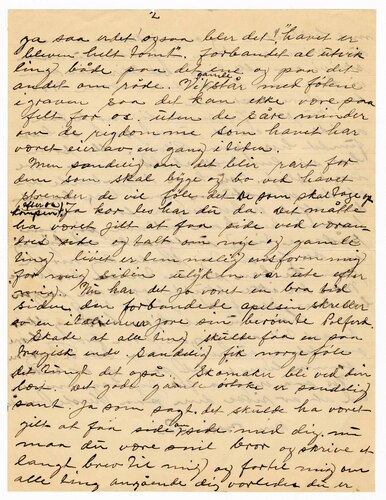 2
ja saa vidt ogsaa bler det! "havet er
bleven helt tomt". forbandet al utvik
ling både paa det ene og paa det
andet om råde. Vi gamle står med fötene
i graven saa det kan ikke vore paa
felt for os. uten de såre minder
om de rigdomme som havet har
voret eier av en gang i tiden.
Men sandelig om det blir rart for
dem som skal bygge og bo ved havet
de vil föle det De som skal tage
efter os
fa kor les har du da. det måtte
ha voret gilt at faa side ved voran
dres side og talt om nye og gamle
ting, livet er
for mig siden
Nu har det jo voret en bra tid
siden, den forbandede apelsin skreller
av en italiener gore sin berömte
Skade at alle ting skulde faa en saa
tragisk ende. Sandelig fik norge föle
det tungt det også. Skomaker bliv ved din
lest. det gode gamle er sandelig
sant. Ja som sagt, det skulde ha voret
gilt at faa side med dig, nu
maa du vore snil bror og skrive et
langt brev til mig og fortel mig om
alle ting angående dig vorledes du er